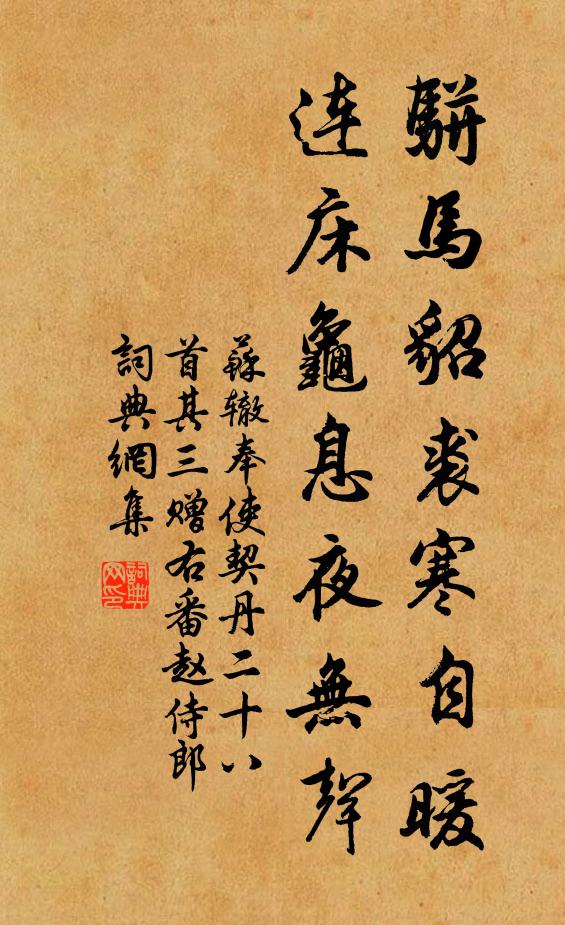 騈馬貂裘寒自暖
連床龜息夜無聲
蘇辙奉使契丹二十八
首其三赠右番赵侍郎
詞典網集
詞典网印